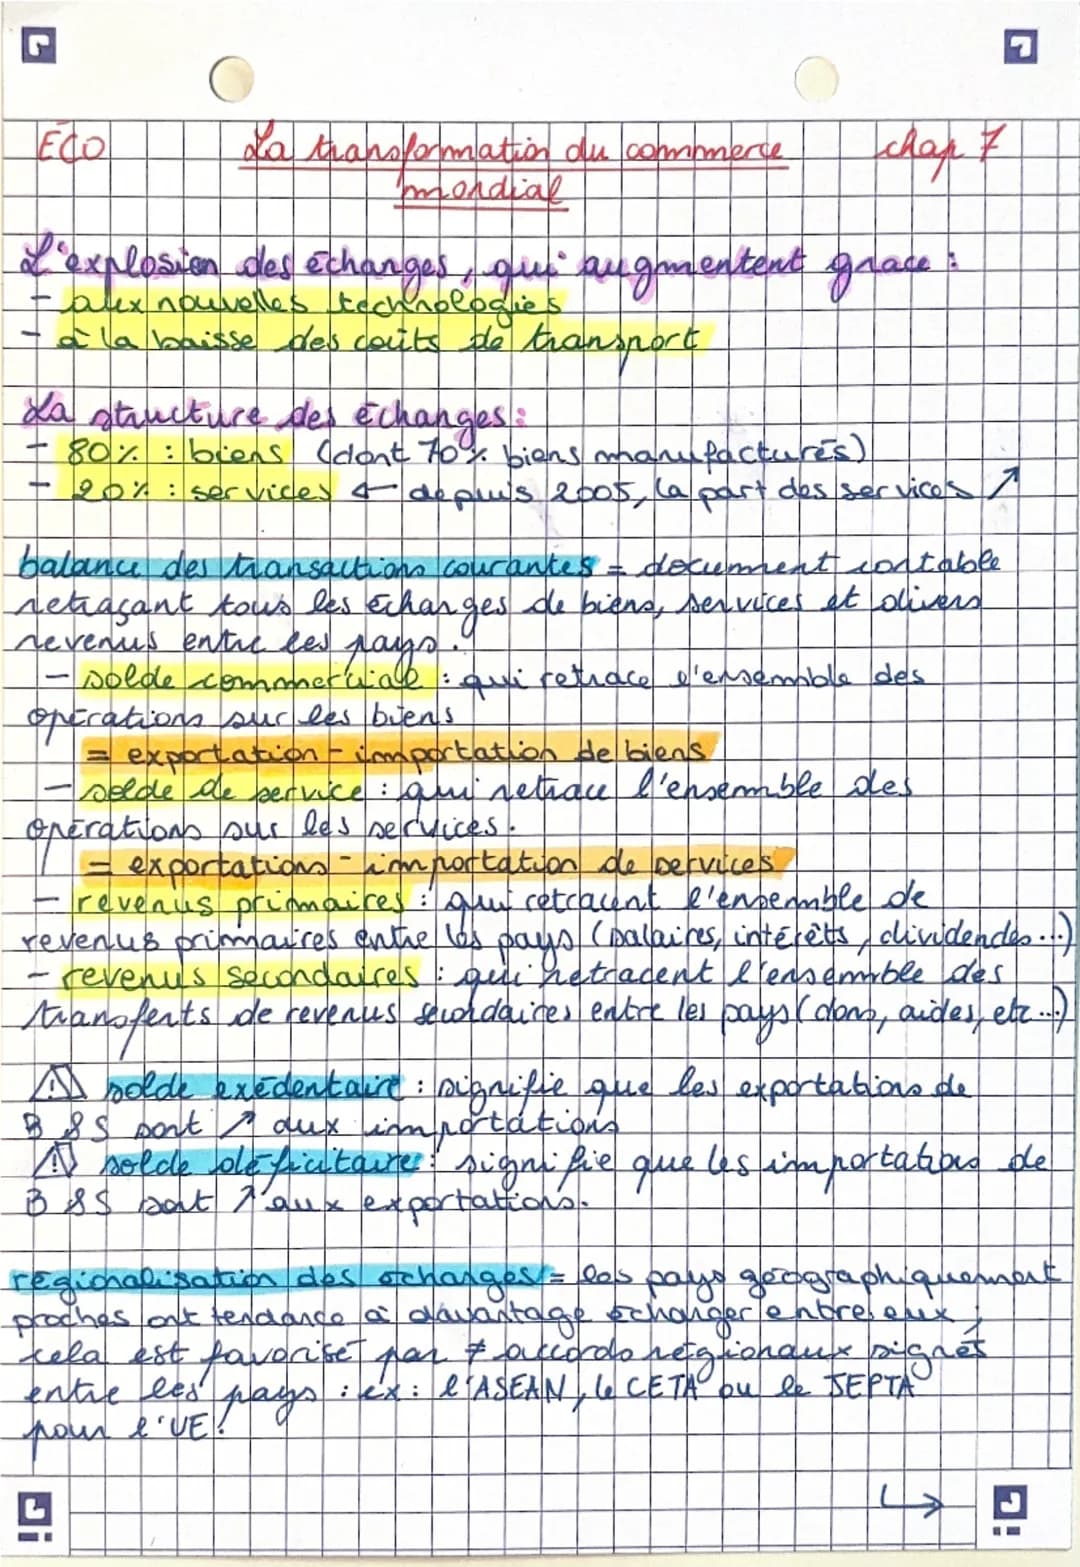 ÉCO La transformation du commerce chap 7
mondial
L'explosion des échanges, qui augmentent grace :
- aux nouvelles technologies
- à la baisse des coûts de transport
La structure des échanges :
- 80% : biens (dont 70% biens manufacturés)
- 20% : services ← depuis 2005, la part des services ↗
balance des transactions courantes = document contable
retraçant tous les échanges de biens, services et divers
revenus entre les pays.
- solde commerciale : qui retrace l'ensemble des
opérations sur les biens
= exportation - importation de biens
- solde de service : qui retrace l'ensemble des
opérations sur les services.
= exportations - importation de services
- revenus primaires : qui retracent l'ensemble de
revenus primaires entre les pays (salaires, intérêts, dividendes...)
- revenus secondaires : qui retracent l'ensemble des
transferts de revenus secondaires entre les pays (dons, aides, etc...)
⚠ solde exédentaire : signifie que les exportations de
B &S sont ↗ aux importations
⚠ solde déficitaire : signifie que les importations de
B &S sont ↗ aux exportations.
régionalisation des échanges = les pays géographiquement
proches ont tendance à davantage échanger entre eux,
cela est favorisé par ≠ accords régionaux signés
entre les pays : ex : l'ASEAN, le CETA ou le JEPTA
pour l'UE!
↳